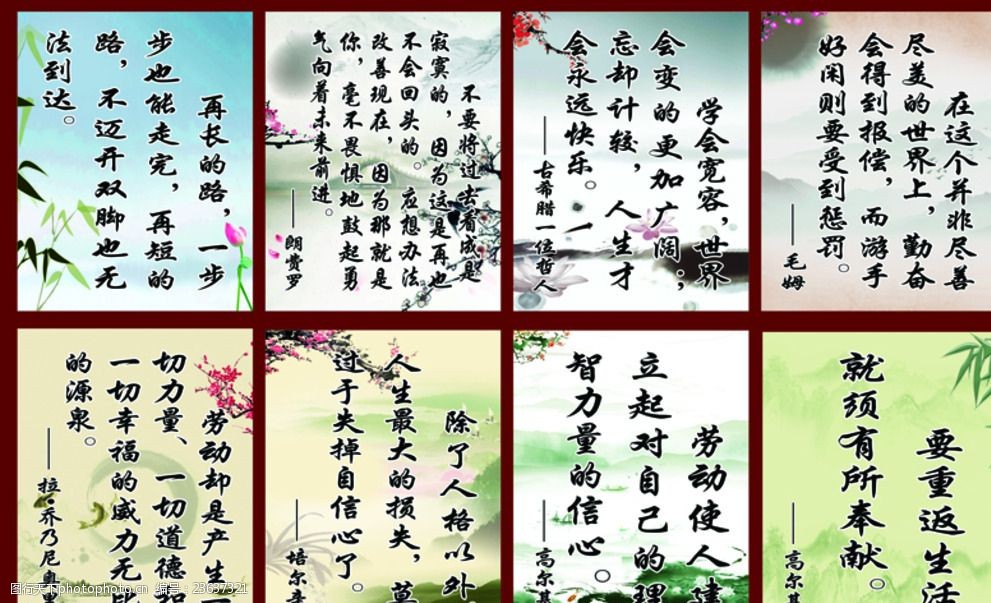 再长的路，一步
步也能走完，再短的
路，不迈开双脚也无
法到达。
不要将过去看成是
寂寞的，因为这是再也
不会回头的。应想办法
改善现在，因为那就是
你，毫不畏惧地鼓起勇
气向着未来前进。
——朗费罗
学会宽容，世界
会变的更加广阔；
忘却计较，人生才
会永远快乐。一
——古希腊一位哲人
在这个并非尽善
尽美的世界上，勤奋
会得到报偿，而游手
好闲则要受到惩罚。
——毛姆
劳动却是产生一
切力量、一切道德和
一切幸福的威力无比
的源泉。
——拉·乔乃尼奥里
除了人格以外
人生最大的损失，莫
过于失掉自信心了。
——培尔辛
劳动使人建
立起对自己的理
智力量的信心。
——高尔基
要重返生活
就须有所奉献。
——高尔基
图行天下photophoto.cn 编号：23637321